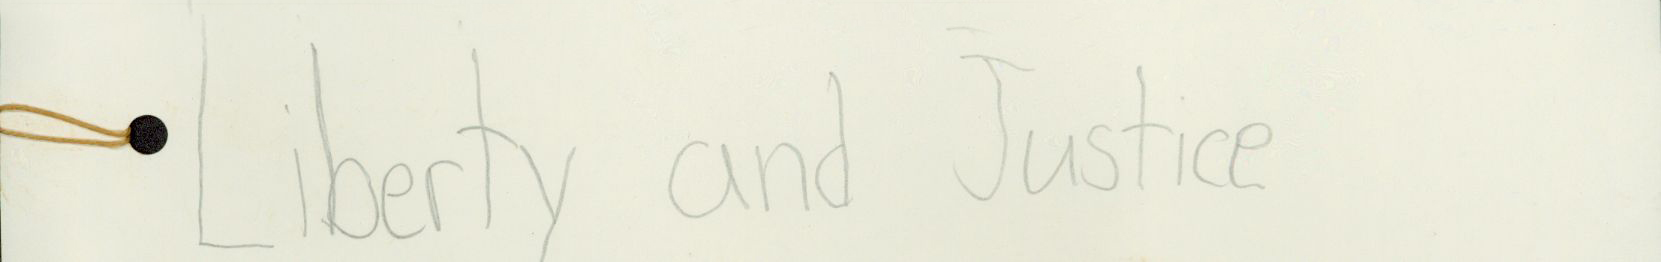 Liberty and Justice